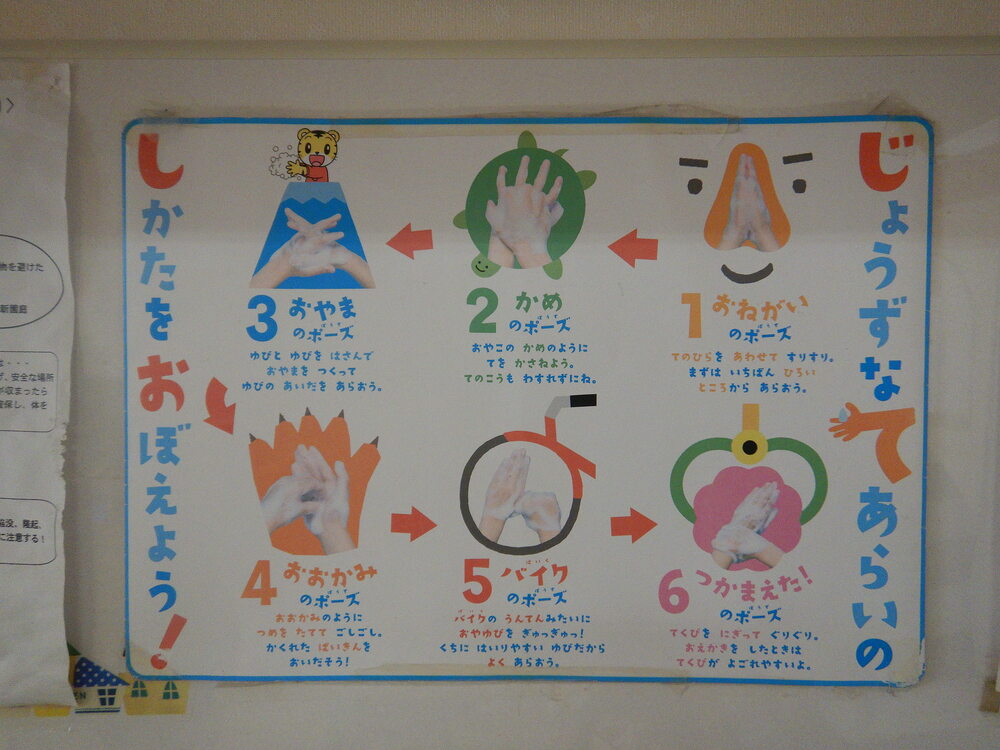 じょうずな てあらいの
しかたを おぼえよう!
1 おねがい
のポーズ
てのひらを あわせて すりすり。
まずは いちばん ひろい
ところから あらおう。
2 かめ
のポーズ
おやこの かめのように
てを かさねよう。
てのこうも わすれずにね。
3 おやま
のポーズ
ゆびと ゆびを はさんで
おやまを つくって
ゆびの あいだを あらおう。
4 おおかみ
のポーズ
おおかみのように
つめを たてて ごしごし。
かくれた ばいきんを
おいだそう!
5 バイク
のポーズ
バイクの うんてんみたいに
おやゆびを ぎゅっぎゅっ!
くちに はいりやすい ゆびだから
よく あらおう。
6 つかまえた!
のポーズ
てくびを にぎって ぐりぐり。
おえかきを したときは
てくびが よごれやすいよ。
物を避けた
新園島
、安全な場所
が収まったら
確保し、体を
陥没、隆起、
に注意する!